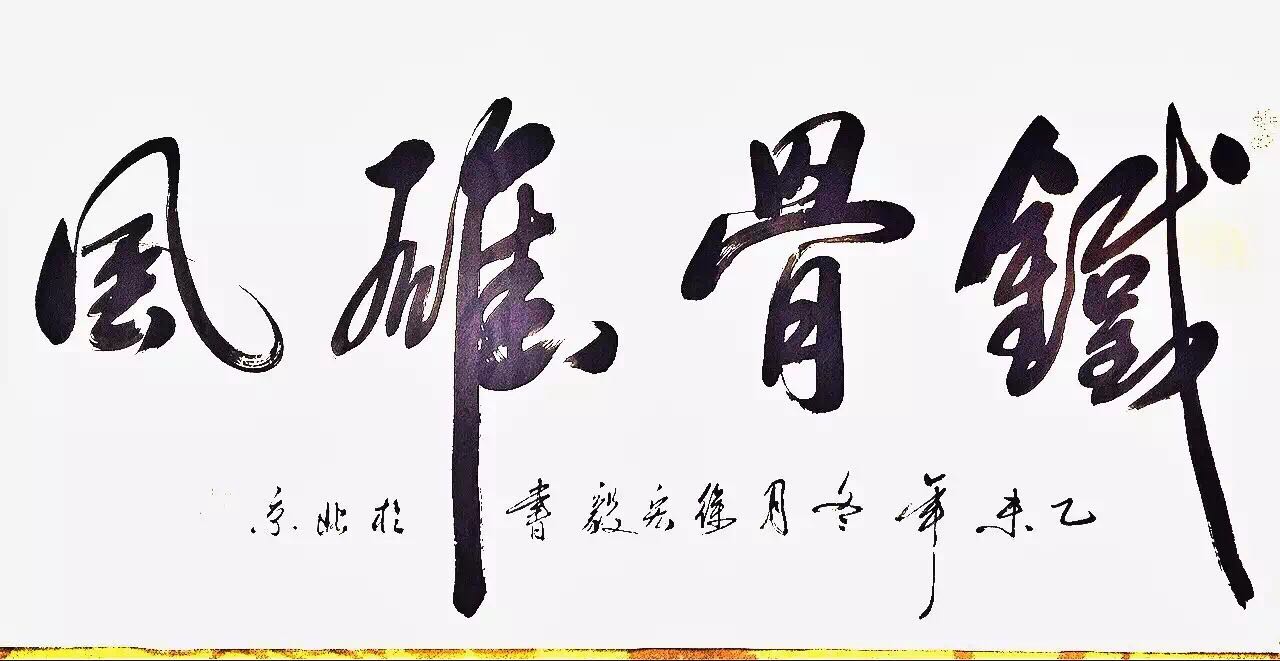 鐵骨雄風
乙未年冬月徐宏毅書於北京